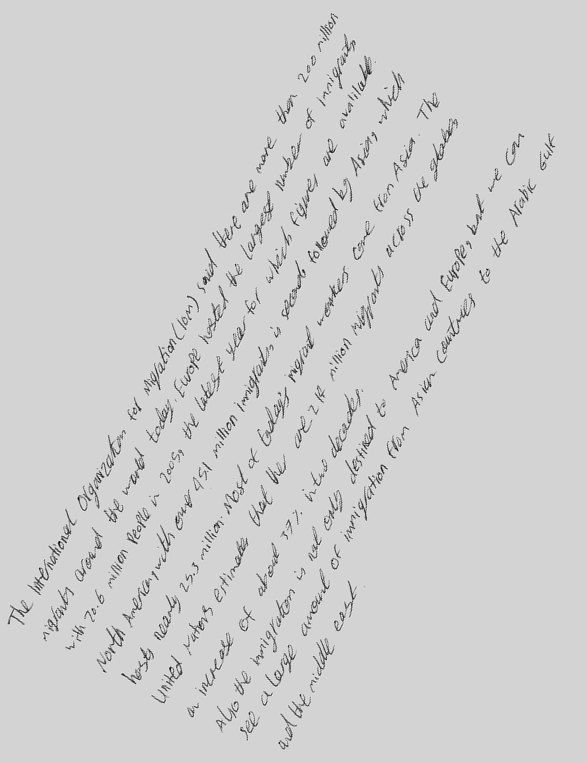 The International Organization for Migration (IOM) said there are more than 200 million
migrants around the world today. Europe hosted the largest number of immigrants,
with 70.6 million People in 2005, the latest year for which figures are available.
North America, with over 45.1 million immigrants is second, followed by Asia, which
hosts nearly 25.3 million. Most of today's migrant workers come from Asia. The
United Nations estimates that the are 214 million migrants across the globe,
an increase of about 37% in two decades.
Also the immigration is not only destined to America and Europe, but we can
see a large amount of immigration from Asian Countries to the Arabic Gulf
and the middle east